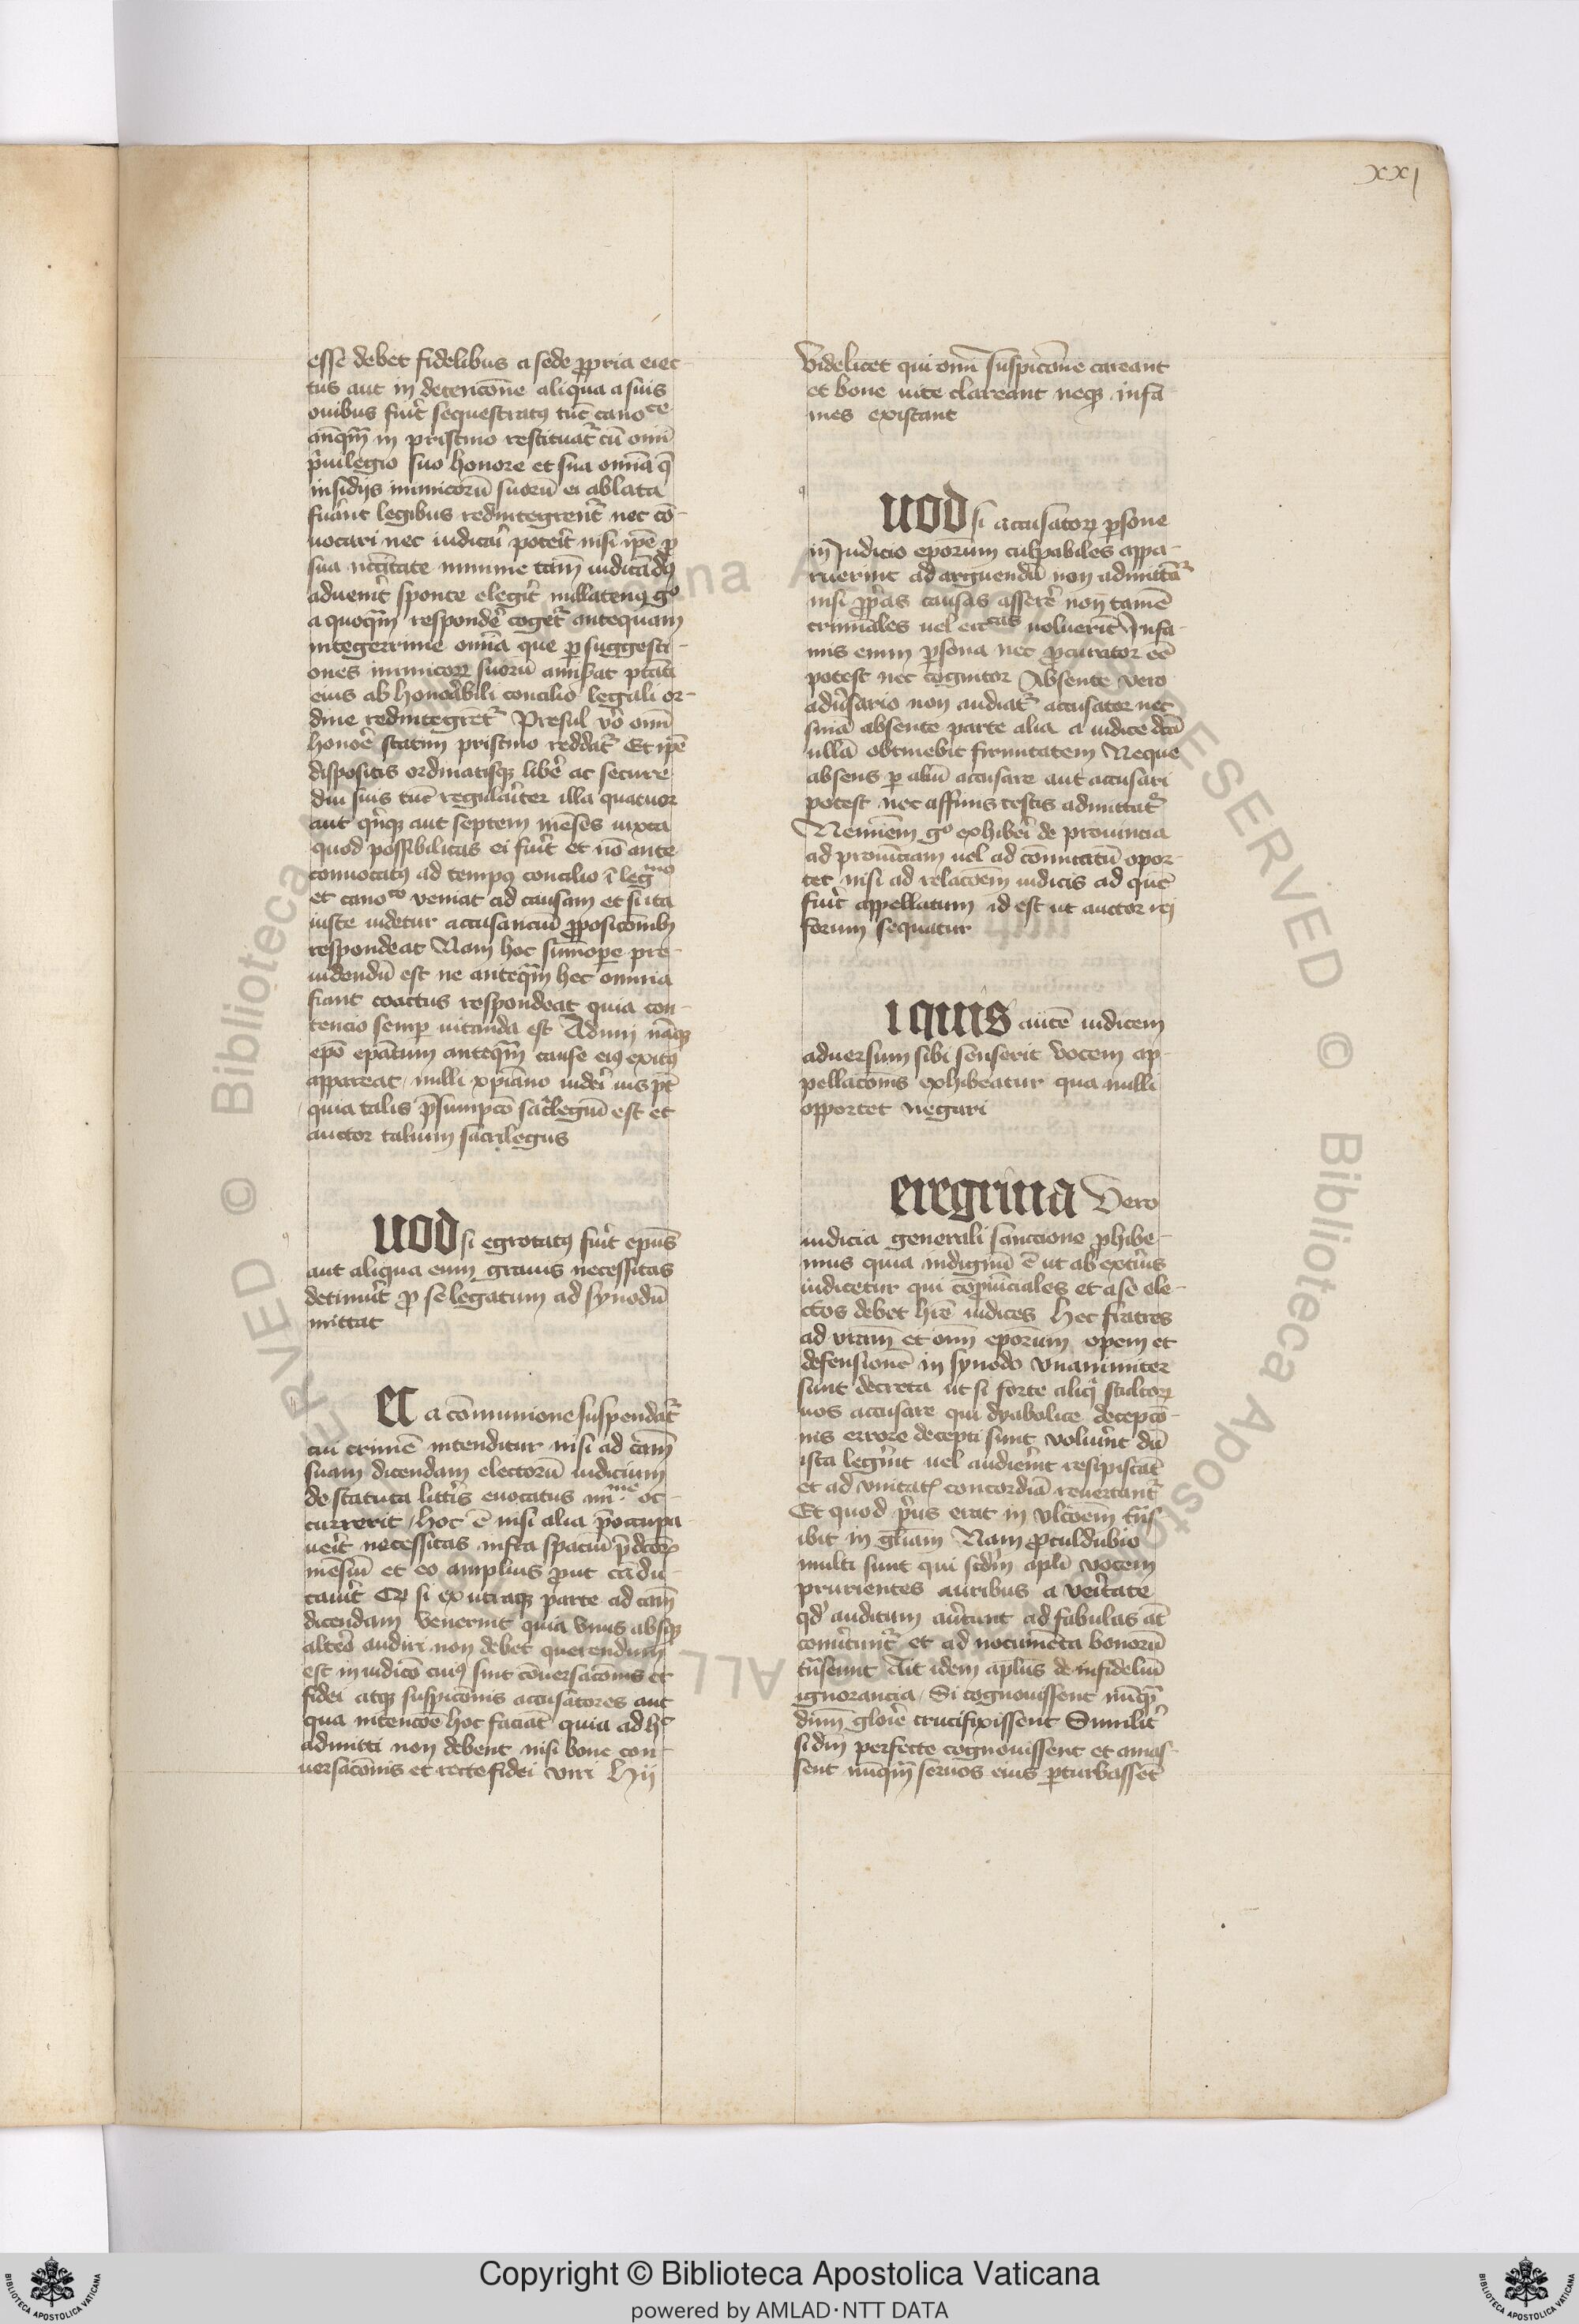 xxj
esse debet fidelibus a sede ꝓpria eiec-
tus aut in detencōne aliqua a suis
ouibus fuit̄ sequestratꝰ tūc canoce
anq̄ꝫ in pristino restituat̄ cū omī
p̄uilegio suo honore et sua omīa q̄
insidijs inimicorū suorū ei ablata
fuānt legibus redintegrent̄ nec cō-
uocari nec iudicāi poteīt nisi ip̄e ꝓ
sua nēcītate minime tam̄ iudicādꝰ
aduenīt sponte elegīt nullatenꝰ gᵒ
a quoqꝫ respondē coget̄ antequam
integerrime omīa que ꝑ suggesti-
ones inimicoꝝ suorū amībat ptātī
eius ab honoābili concilio legali or-
dine redintegrēt̄ Presul vō omī
honoē statim pristino reddat̄ Et ip̄e
dispositis ordinatisqꝫ libē ac secure
diu suis tūc regulaīter illa quatuor
aut qnqꝫ aut septem mēses iuxta
quod possibilitas ei fuīt et nō ante
conuocatꝰ ad tempꝰ concilio ī legᵐᵒ
et canoᶜᵒ veniat ad causam et si ita
iuste uidetur accusanciū ꝓposicōībꝫ
respondeat Nam hoc sūmope pre-
uidendū est ne anteqꝫ hec omnia
fiant coactus respondeat quia con-
tencio semꝑ uitanda est Adimi nāqꝫ
epō epātum anteqꝫ cause eiꝰ exitꝰ
appareat nulli xp̄iano uideī ius pt̄
quia talis p̄sumpcō sacīlegiū est et
auctor talium sacrilegus
uod si egrotatꝰ fuīt epūs
aut aliqua eum grauis necessitas
detinuīt ꝓ se legatum ad synodū
mittat
ec a cōmunione suspendat̄
cui crimē intenditur nisi ad cām
suam dicendam electorū iudicium
de statuta littīs euocatus miᵐᵉ oc-
currerit hoc ē nisi alia p̄occupa-
ueīt necessitas infra spaciū p̄dcōꝝ
mēsiū et eo amplius put cā du-
cauīt Qꝫ si ex utraqꝫ parte ad cām
dicendam venerint quia vnus absqꝫ
alteō audiri non debet querendum
est in iudicō cuiꝰ sint cōuersacōnis et
fidei atqꝫ suspicōnis accusatores aut
qua intencōe hoc faciāt quia ad hᶜ
admitti non debent nisi bone con-
uersacōnis et recte fidei viri hij
Videlicet qui omī suspicōne careant
et bone uite clareant neqꝫ infa-
mes existant
uod si accusatoꝝ ꝑsone
in Judicio eporum culpabiles appa-
ruerint ad arguendū non admittāt̄
nisi ꝓp̄as causas asserē non tamē
criminales uel ecᶜᵃˢ uoluerīt Infa-
mis enim ꝑsona nec ꝓcurator eē
potest nec cognitor Absente vero
adūsario non audiat̄ accusator nec
snīa absente parte alia a iudice dcā
ullā obtinebit firmitatem Neque
absens ꝑ aliū accusare aut accusari
potest nec affinis testis admittat̄
Neminem gᵒ exhiberi de prouincia
ad prouinciam uel ad cōmitatū opor-
tet nisi ad relacōem iudicis ad quē
fuīt appellatum id est ut auctor rei
forum sequatur
i quis autē iudicem
aduersum sibi senserit vocem ap-
pellacōnis exhibeatur qua nulli
opportet negari
eregrina Vero
iudicia generali sanctione ꝓhibe-
mus quia indignū ē ut ab extīis
iudicetur qui cōꝓuinciales et a se ele-
ctos debet hīe iudices hec fratres
ad vrām et omī eporum opem et
defensionē in synodo vnanimiter
sunt decreta ut si forte aliqͥ stultoꝝ
uos accusare qui dyabolice decepcō-
nis errore decepti sunt voluīnt dū
ista legīnt uel audieīnt resipiscāt
et ad vnitat̄ concordiā reuertant̄
Et quod pͥus erat in vlcōem tn̄s-
ibit in gl̄iam Nam ꝓculdubio
multi sunt qui scdm apl̄i vocem
prurientes auribus a veītate
qdͥ auditum aūtunt ad fabulas āt
conūtunt̄ et ad nocumēta bonorū
tn̄seunt Ait idem apl̄us de infideliū
ignorancia Si cognouissent nūqꝫ
dūm gloīe crucifixissent Similīt
si dm̄ perfecte cognouissent et amas-
sent nūqꝫ seruos eius ꝑturbassēt
Copyright © Biblioteca Apostolica Vaticana
powered by AMLAD·NTT DATA